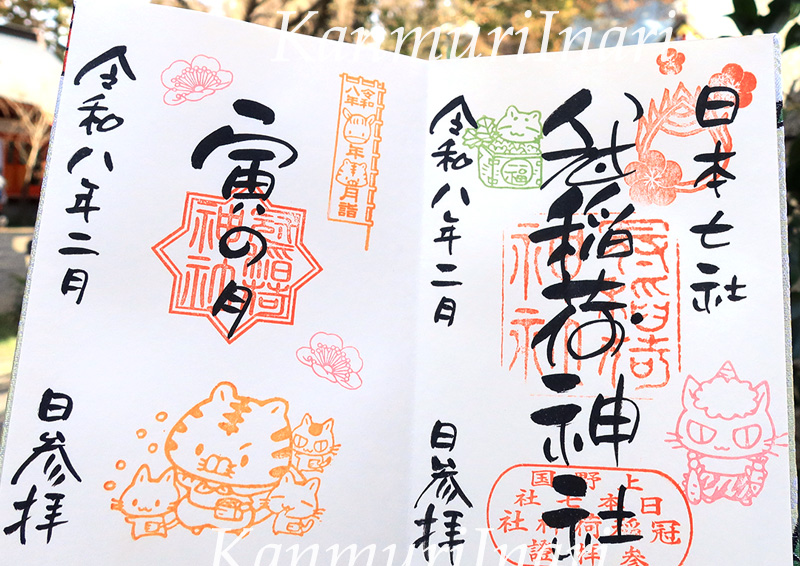 KanmuriInari
日本七社
冠稲荷神社
令和八年二月
日参拝
福
上野国
日本七社
冠稲荷
参拝
令和
八年
年
月詣
寅の月
冠稲荷
神社
令和八年二月
日参拝
KanmuriInari